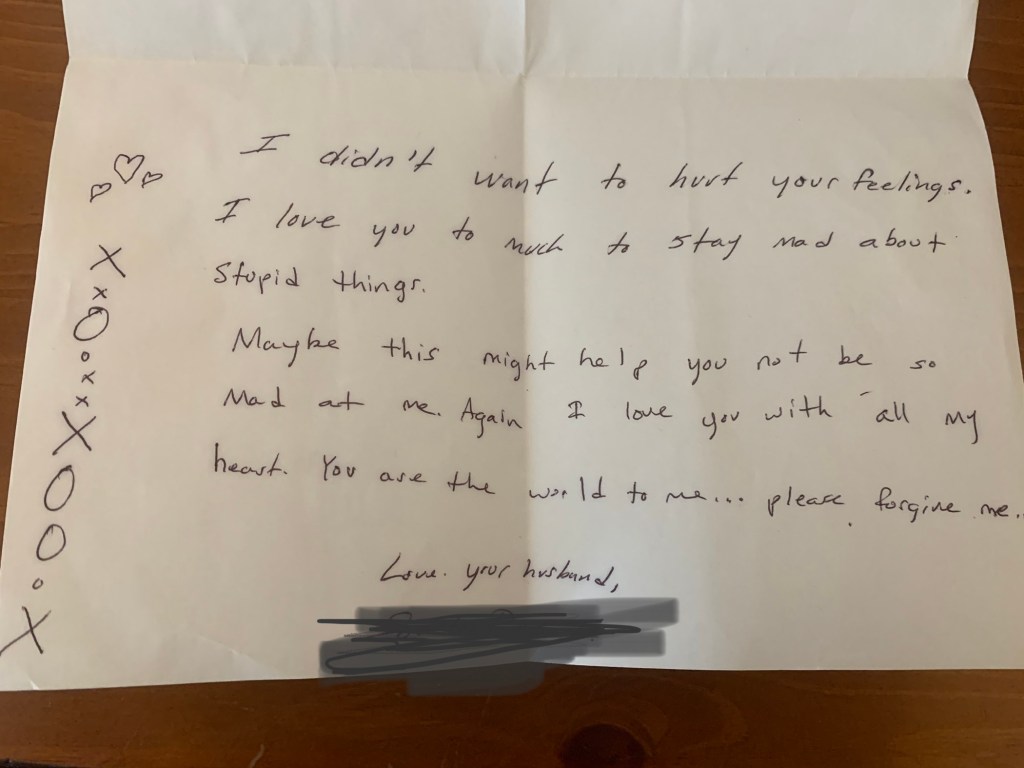 I didn't want to hurt your feelings.
I love you to much to stay mad about
stupid things.
Maybe this might help you not be so
mad at me. Again I love you with all my
heart. You are the world to me... please forgive me..
Love. your husband,
X
x
O
o
x
x
X
O
O
o
X